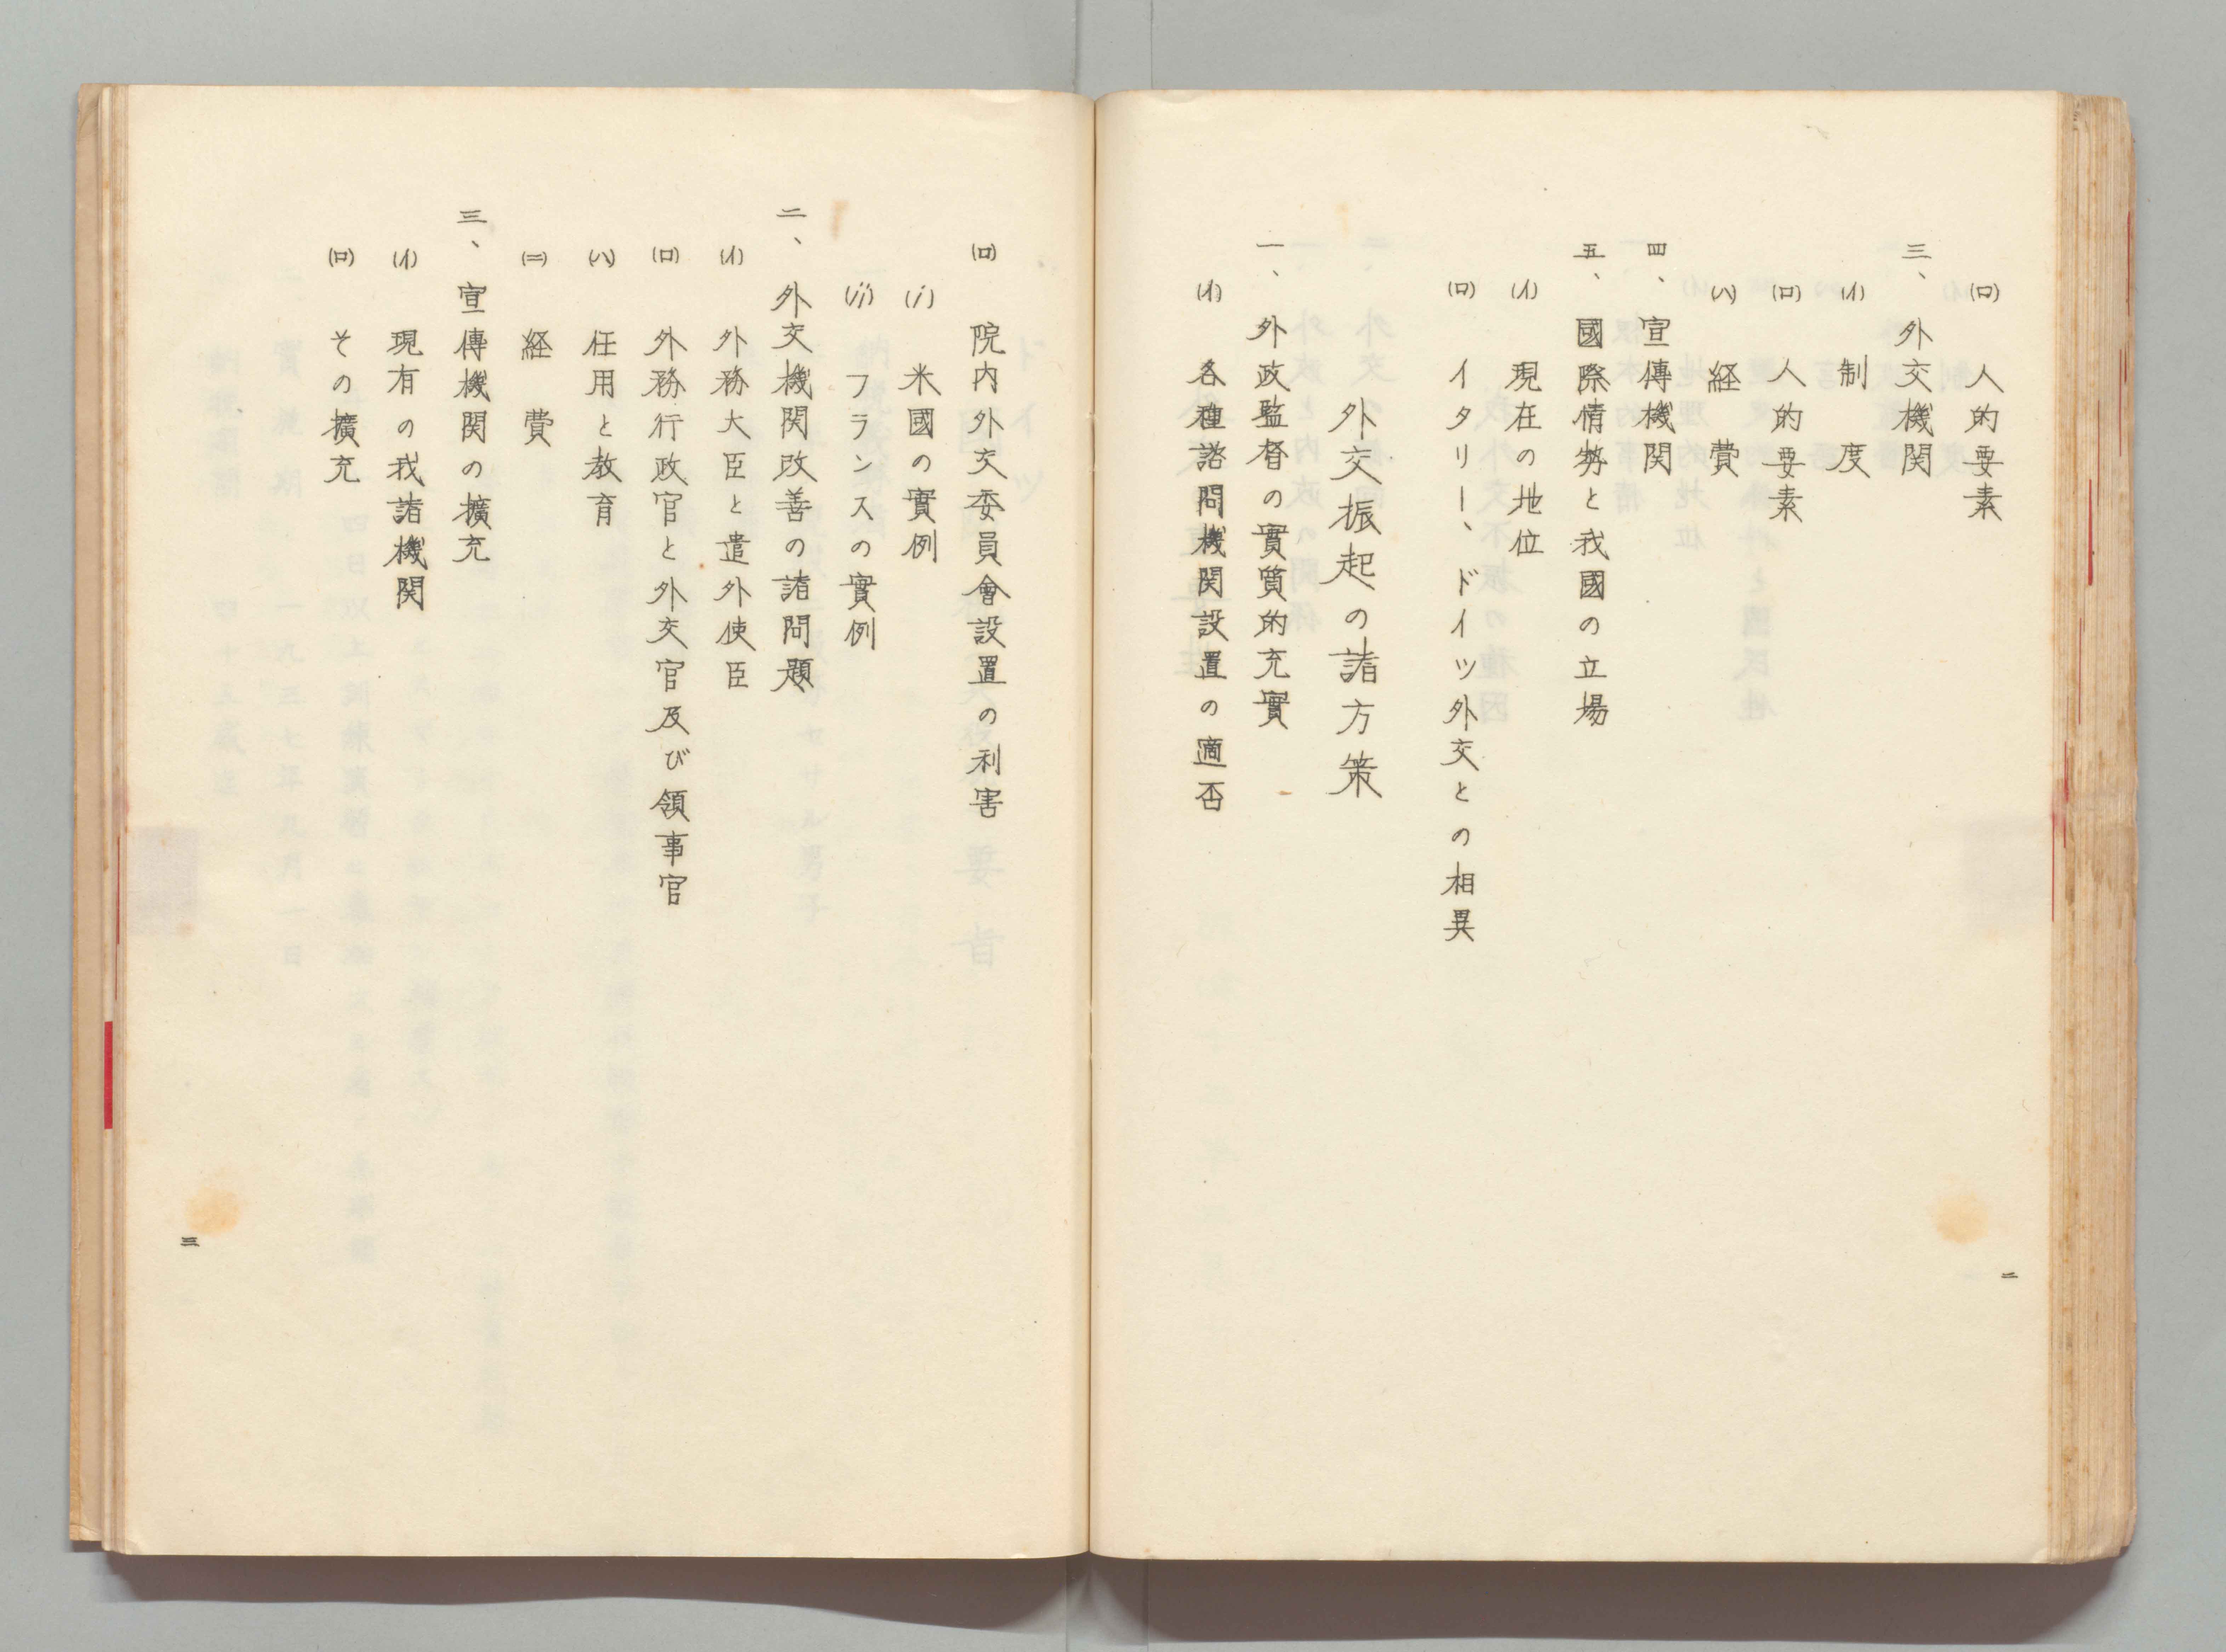 (ロ) 人的要素
三、外交機関
(イ) 制度
(ロ) 人的要素
(ハ) 経費
四、宣傳機関
五、國際情勢と我國の立場
(イ) 現在の地位
(ロ) イタリー、ドイツ外交との相異
外交振起の諸方策
一、外政監督の實質的充實
(イ) 各種諮問機関設置の適否
二
(ロ) 院内外交委員會設置の利害
(i) 米國の實例
(ii) フランスの實例
二、外交機関改善の諸問題
(イ) 外務大臣と遣外使臣
(ロ) 外務行政官と外交官及び領事官
(ハ) 任用と教育
(ニ) 経費
三、宣傳機関の擴充
(イ) 現有の我諸機関
(ロ) その擴充
三